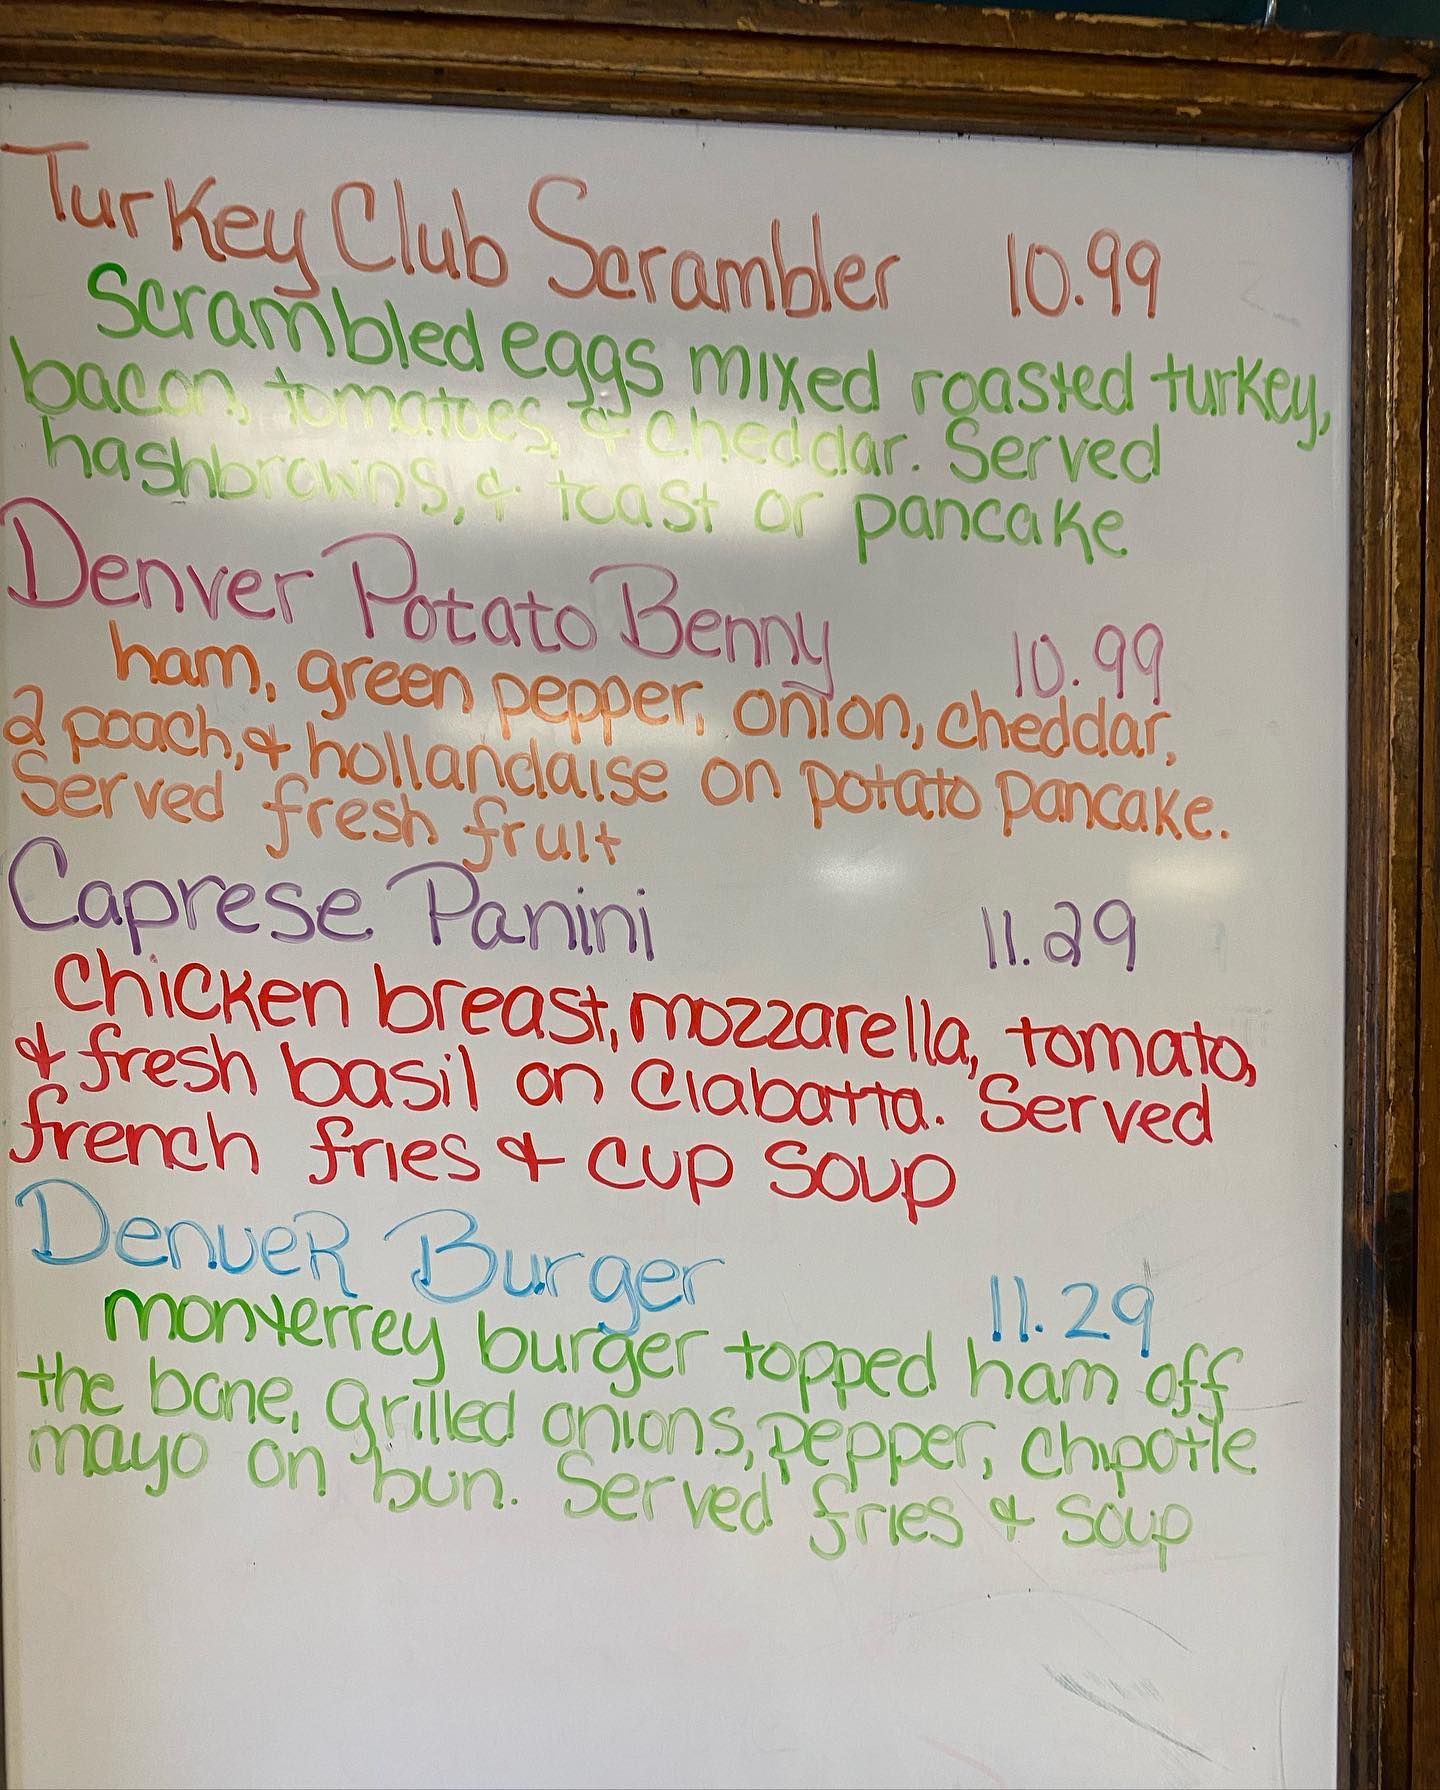 Turkey Club Scrambler 10.99
Scrambled eggs mixed roasted turkey,
bacon, tomatoes, & cheddar. Served
hashbrowns, & toast or pancake
Denver Potato Benny 10.99
ham, green pepper, onion, cheddar,
2 poach, & hollandaise on potato pancake.
Served fresh fruit
Caprese Panini 11.29
Chicken breast, mozzarella, tomato,
& fresh basil on Ciabatta. Served
french fries & cup soup
DenveR Burger 11.29
monterrey burger topped ham off
the bone, grilled onions, pepper, chipotle
mayo on bun. Served fries & soup